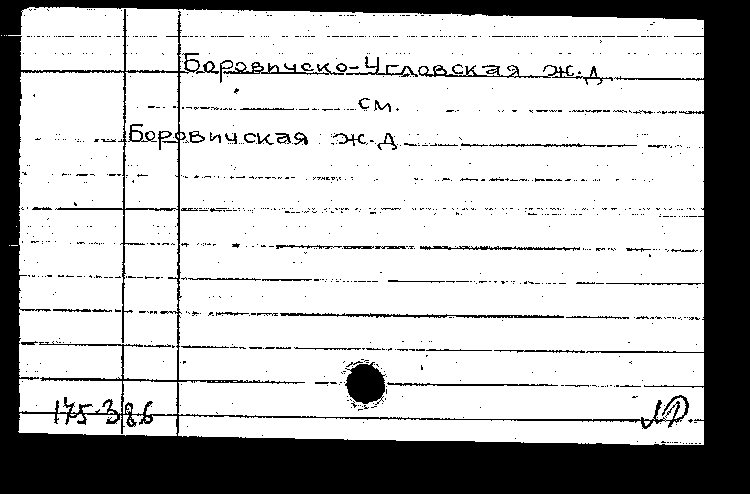 Боровичско-Угловская ж.д.
см.
Боровичская ж.д.
175-386